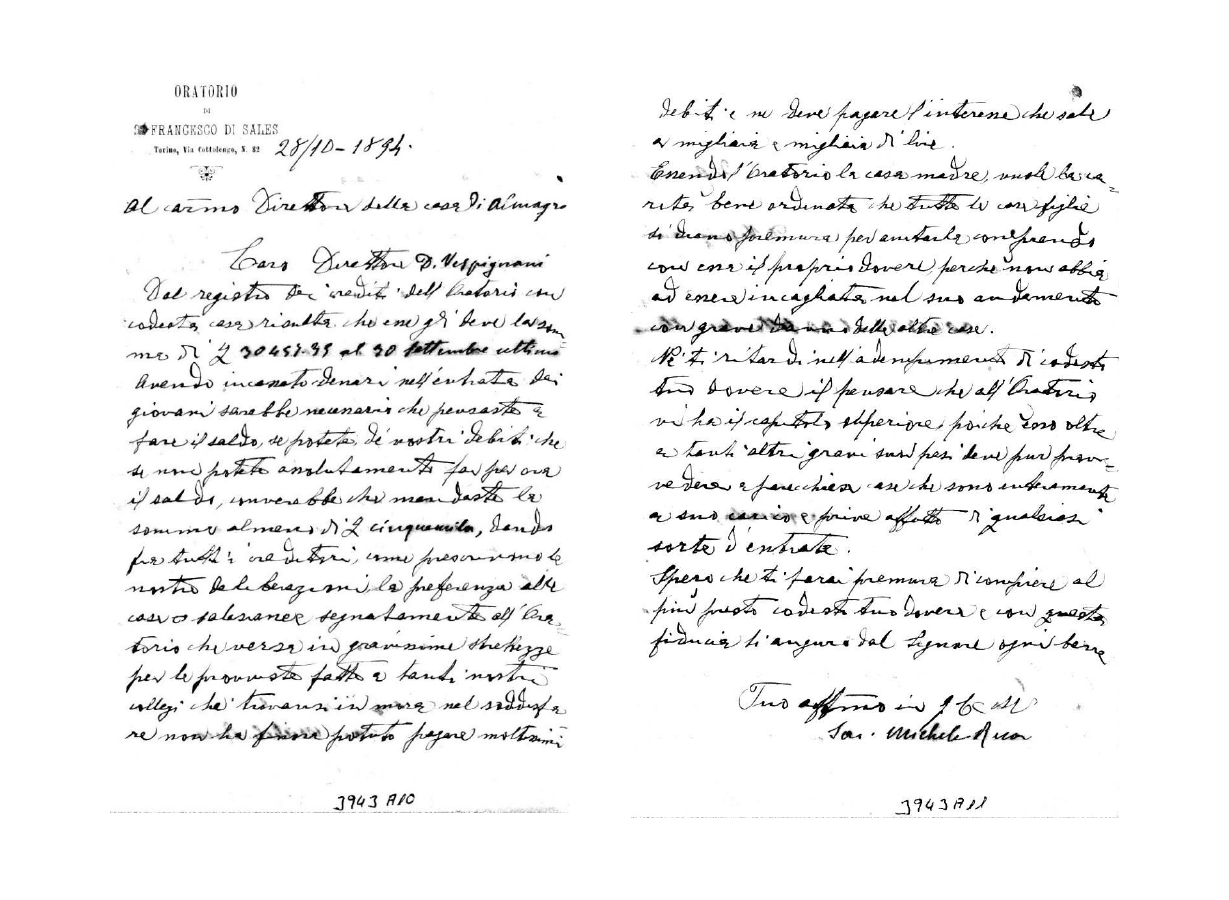 ORATORIO
DI
S. FRANCESCO DI SALES
Torino, Via Cottolengo, N. 32
28/10-1894.
Al carmo Direttore della casa di Almagro
Caro Direttore D. Vespignani
Dal registro dei crediti dell'Oratorio con
codesta casa risulta che essa gli deve la som
ma di £ 30457.95 al 30 settembre ultimo
Avendo incassato denari nell'entrata dei
giovani sarebbe necessario che pensaste a
fare il saldo, se potete, de' vostri debiti che
se non potete assolutamente far per ora
il saldo, converebbe che mandaste la
somma almeno di £ cinquemila, dando
fra tutti i creditori, come prescrivono le
nostre deliberazioni la preferenza alle
case salesiane e segnatamente all'Ora-
torio che versa in gravissime strettezze
per le provviste fatte a tanti nostri
collegi che trovansi in mora nel soddisfa
re non ha finora potuto pagare moltissimi
3943 A10
debiti e ne deve pagare l'interesse che sale
a migliaia e migliaia di lire.
Essendo l'Oratorio la casa madre, vuole la ca-
rità bene ordinata che tutte le case figlie
si diano premura per aiutarla compiendo
con essa il proprio dovere, perché non abbia
ad essere incagliata nel suo andamento
con grave danno delle altre case.
Né ti ritardi nell'adempimento di codesto
tuo dovere il pensare che all'Oratorio
vi ha il capitolo superiore, poiché esso oltre
a tanti altri gravi suoi pesi deve pur prov-
vedere a parecchie case che sono interamente
a suo carico e prive affatto di qualsiasi
sorta d'entrate.
Spero che ti farai premura di compiere al
più presto codesto tuo dovere e con questa
fiducia ti auguro dal Signore ogni bene
Tuo affmo in G. C. M
Sac. Michele Rua
3943 A11